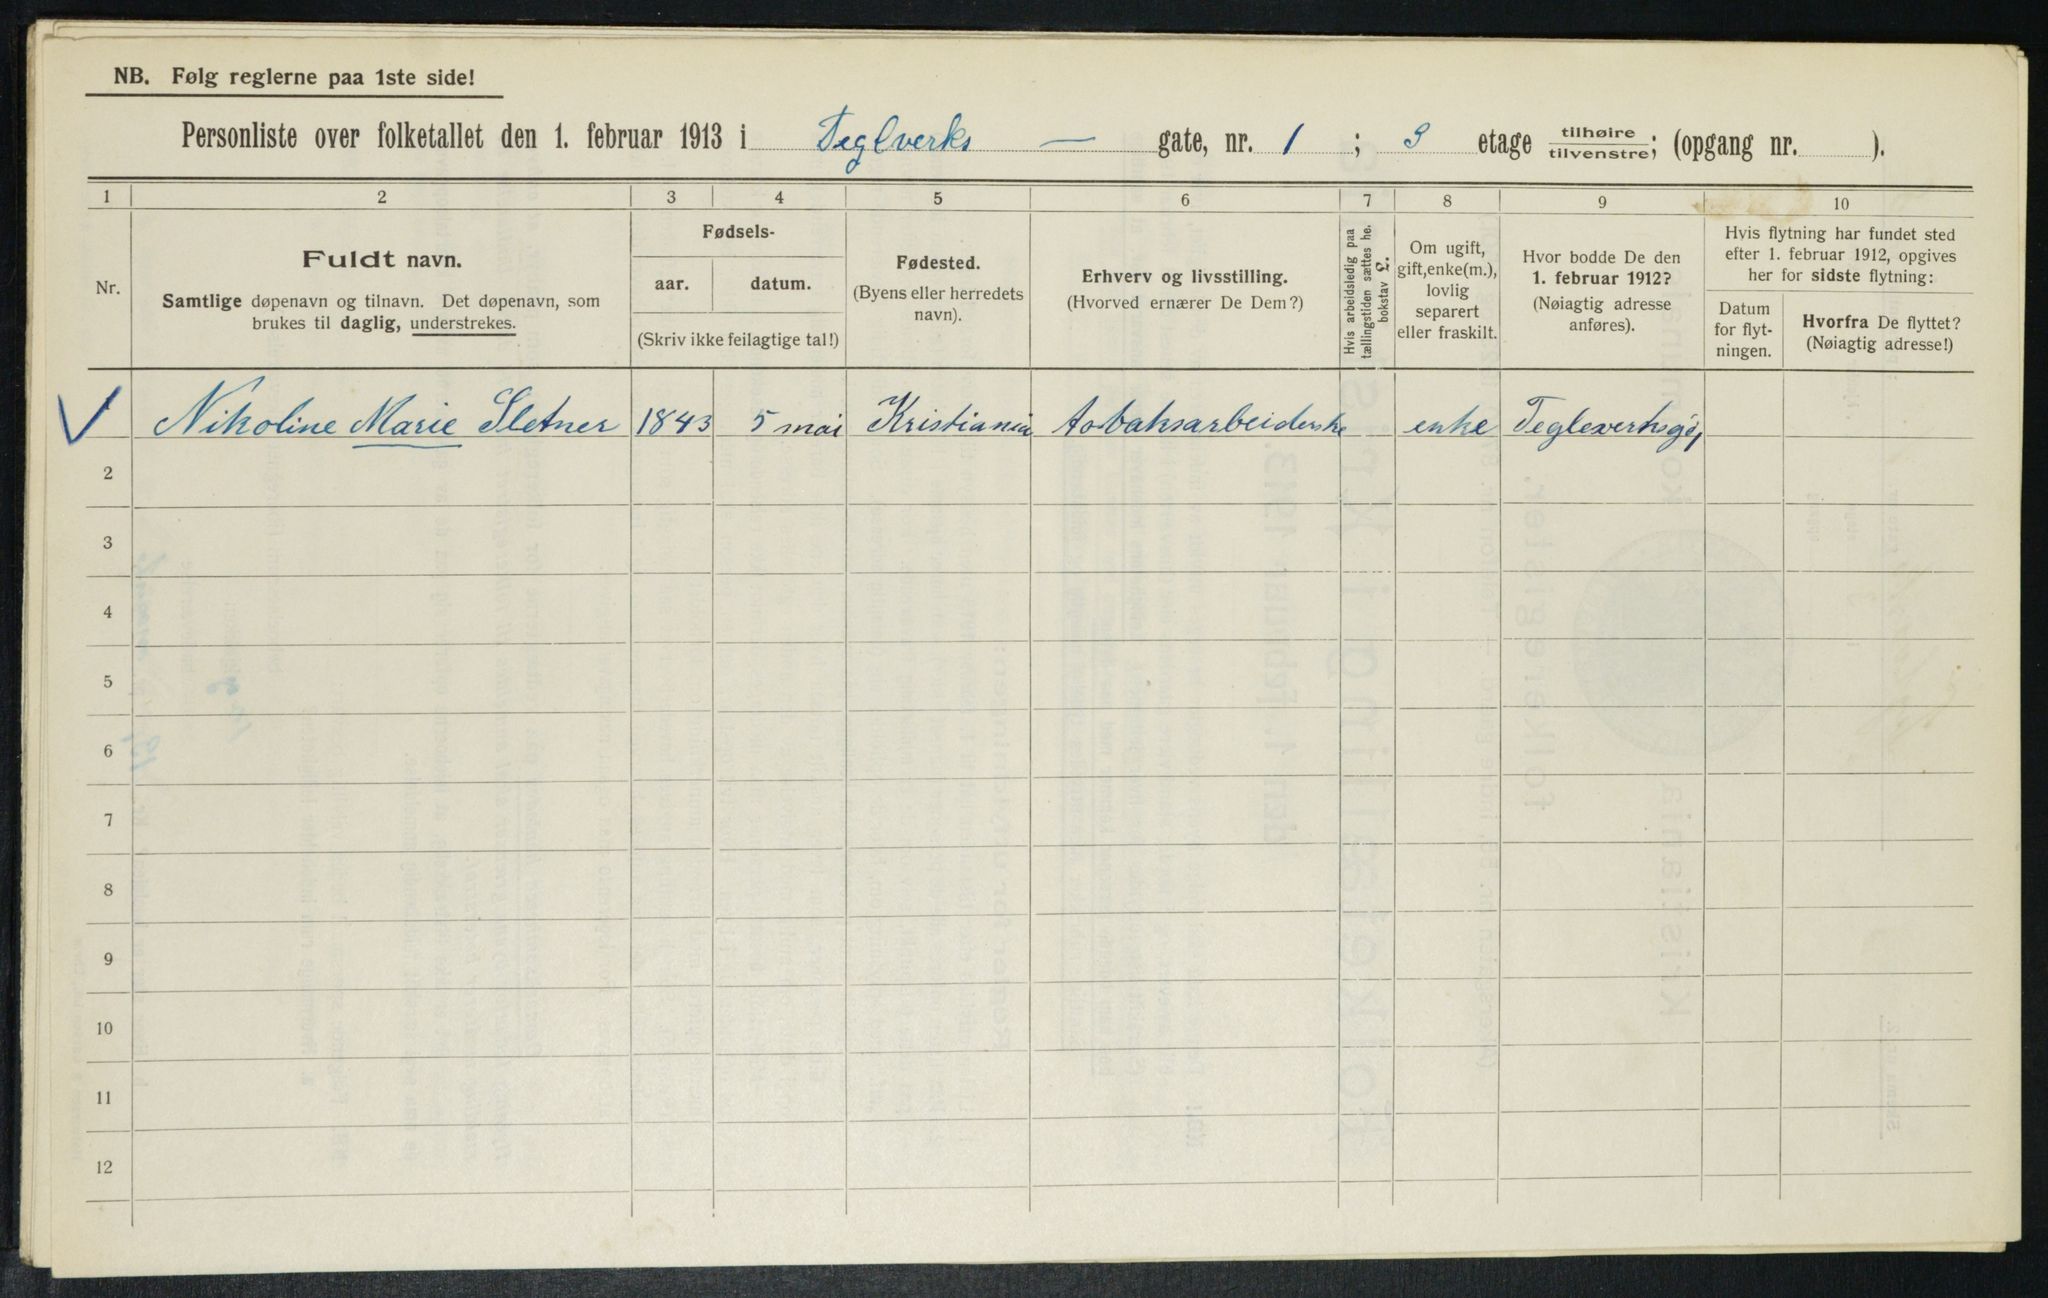 NB. Følg reglerne paa 1ste side!
Personliste over folketallet den 1. februar 1913 i Teglverks — gate, nr. 1 ; 3 etage tilhøire tilvenstre; (opgang nr. ).
1 2 3 4 5 6 7 8 9 10
Nr.
Fuldt navn.
Samtlige døpenavn og tilnavn. Det døpenavn, som
brukes til daglig, understrekes.
Fødsels-
aar. datum.
(Skriv ikke feilagtige tal!)
Fødested.
(Byens eller herredets
navn).
Erhverv og livsstilling.
(Hvorved ernærer De Dem?)
Hvis arbeidsledig paa
tællingstiden sættes he.
bokstav £.
Om ugift,
gift, enke(m.),
lovlig
separert
eller fraskilt.
Hvor bodde De den
1. februar 1912?
(Nøiagtig adresse
anføres).
Hvis flytning har fundet sted
efter 1. februar 1912, opgives
her for sidste flytning:
Datum
for flyt-
ningen.
Hvorfra De flyttet?
(Nøiagtig adresse!)
1 Nikoline Marie Sletner 1843 5 mai Kristiania Tobaksarbeiderske enke Teglverksg 1
2
3
4
5
6
7
8
9
10
11
12